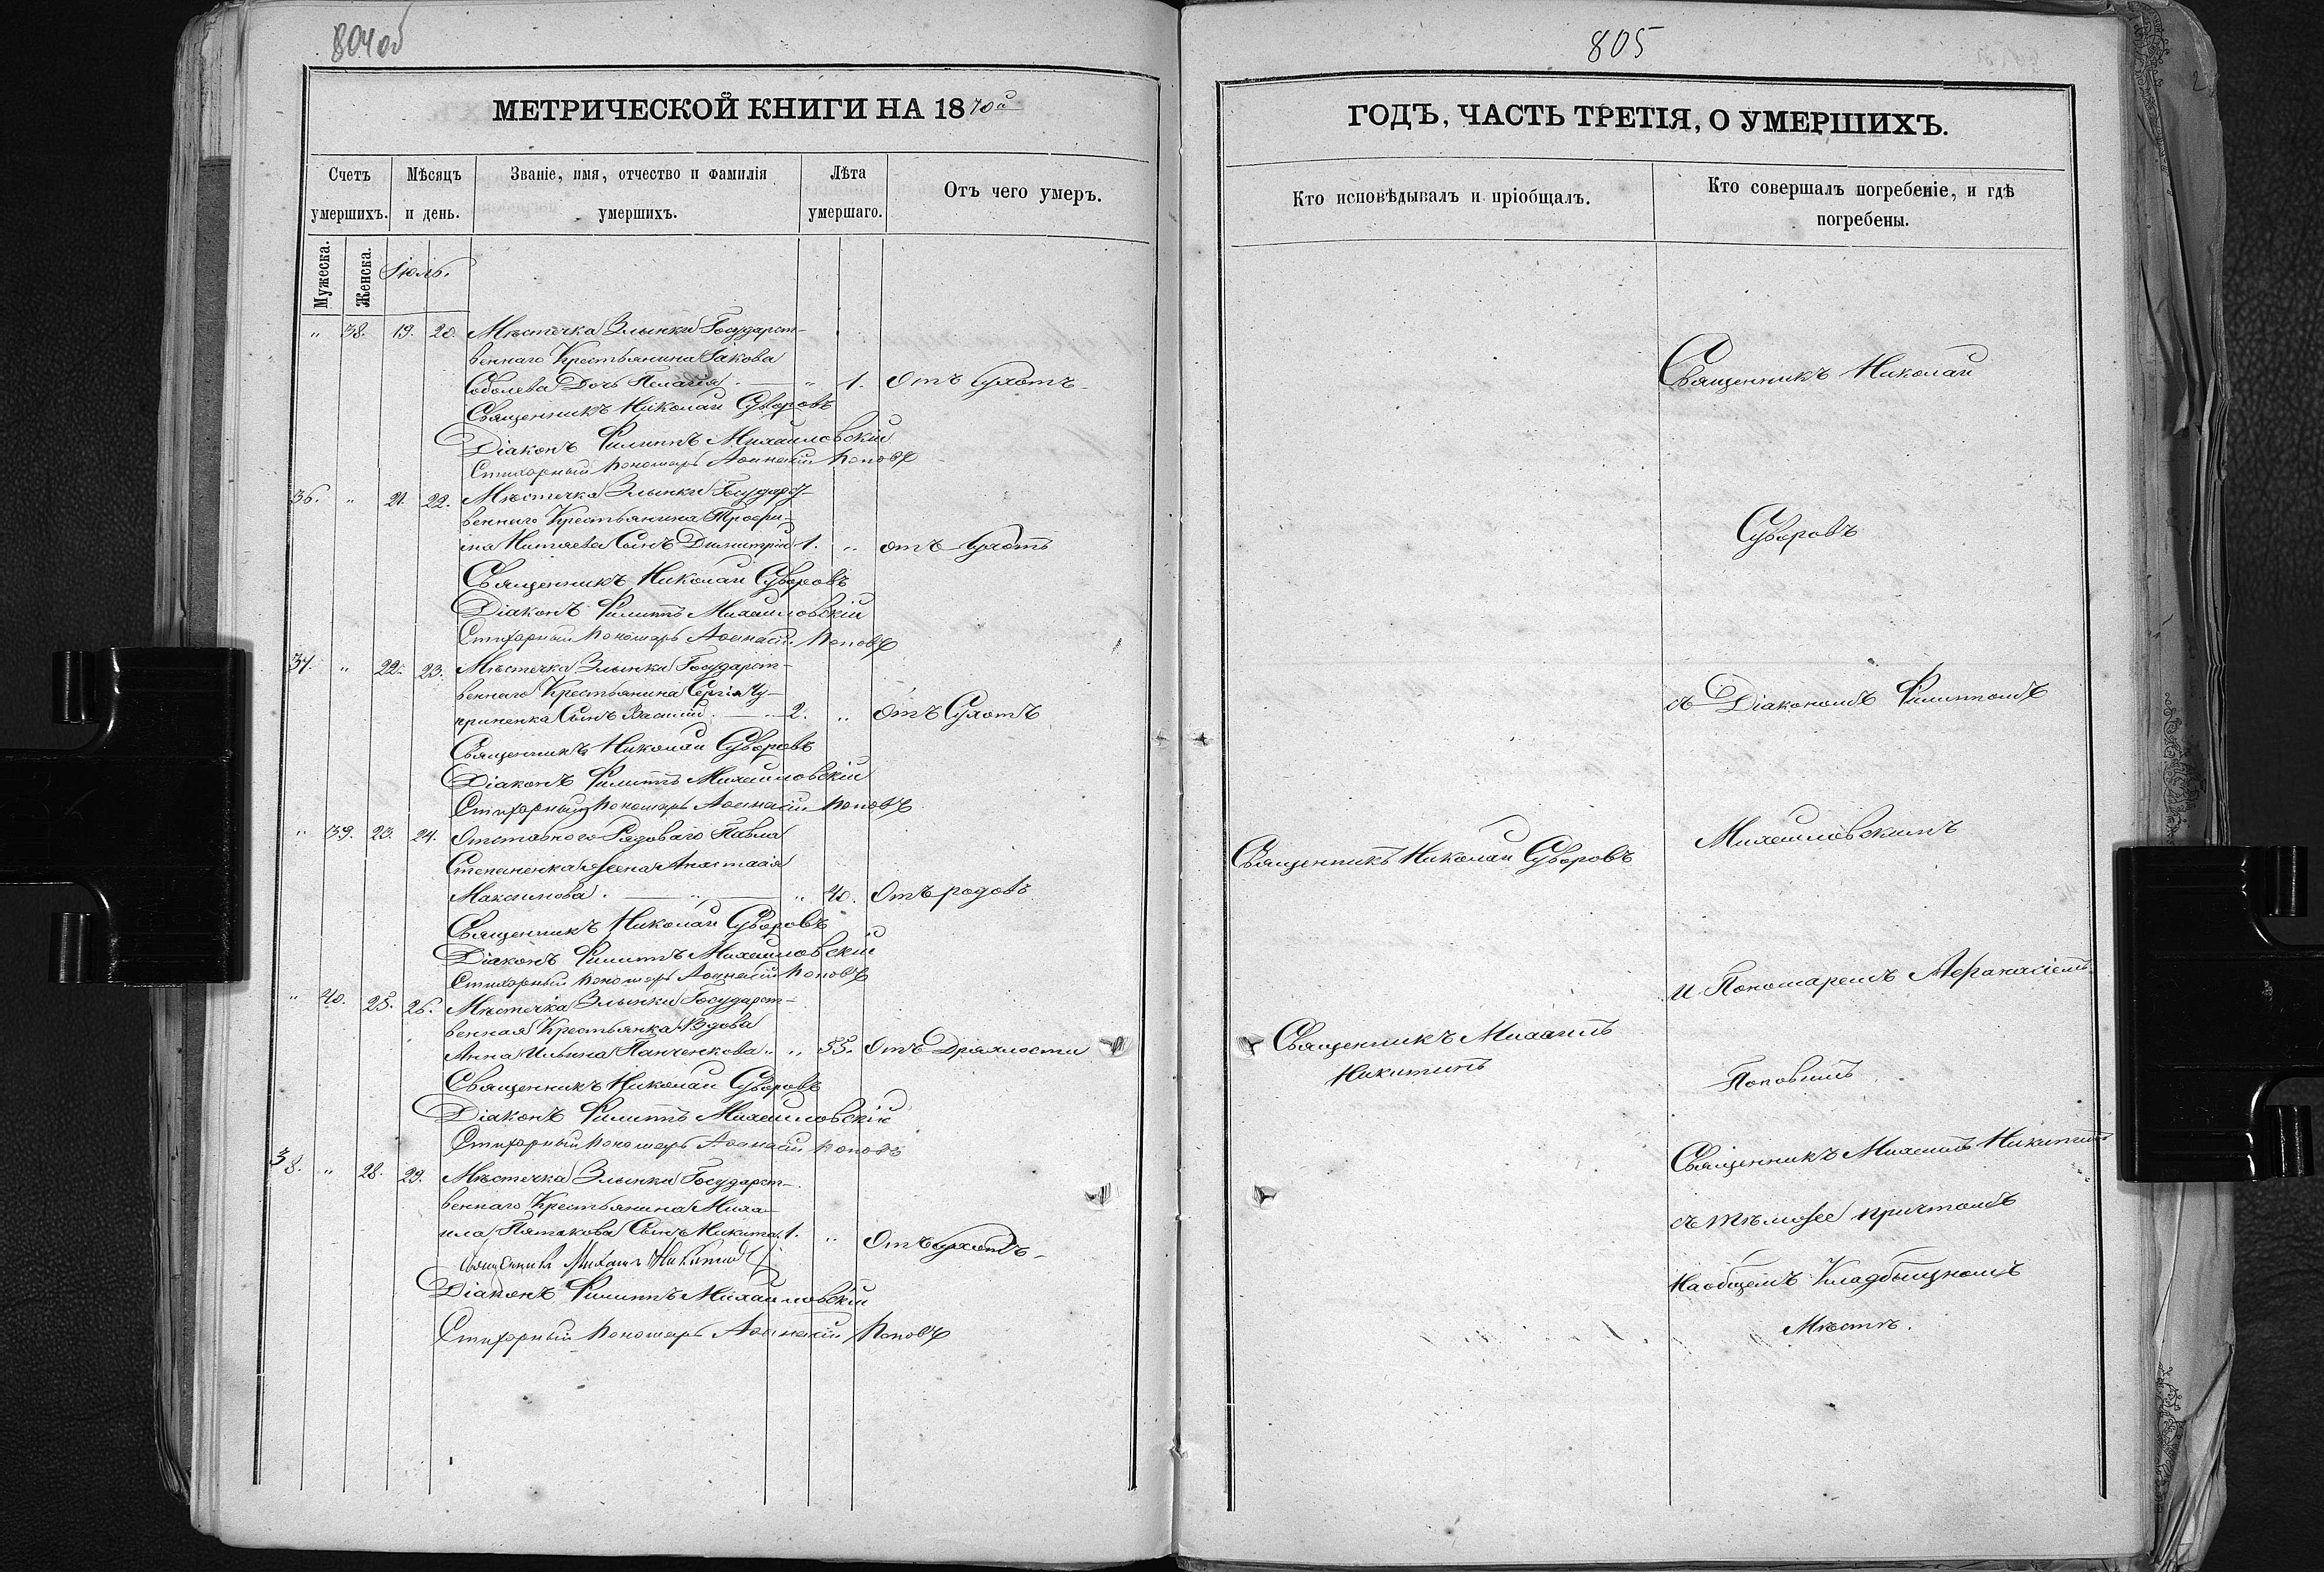 804 об
МЕТРИЧЕСКОЙ КНИГИ НА 1870й
Счетъ умершихъ.
Мѣсяцъ и день.
Званіе, имя, отчество и фамилія умершихъ.
Лѣта умершаго.
Отъ чего умеръ.
Мужеска.
Женска.
Іюль.
" 38. 19. 20. Мѣстечка Злынки Государст-
веннаго Крестьянина Іакова
Соболева Дочь Пелагія. — " 1. Отъ Сухотъ
Священникъ Николай Суворовъ
Діаконъ Филиппъ Михайловскій
Стихарный Пономарь Аѳанасій Поповъ
36. " 21. 22. Мѣстечка Злынки Государст-
веннаго Крестьянина Трофи-
ма Сынъ Димитрій 1. " отъ Сухотъ
Священникъ Николай Суворовъ
Діаконъ Филиппъ Михайловскій
Стихарный Пономарь Аѳанасій Поповъ
37. " 22. 23. Мѣстечка Злынки Государст-
веннаго Крестьянина Сергія Чу-
приненка Сынъ Василій. — 2. " Отъ Сухотъ
Священникъ Николай Суворовъ
Діаконъ Филиппъ Михайловскій
Стихарный Пономарь Аѳанасій Поповъ
" 39. 23. 24. Отставного Рядоваго Павла
Степаненка жена Анастасія
Максимова. — " — " 40. Отъ родовъ
Священникъ Николай Суворовъ
Діаконъ Филиппъ Михайловскій
Стихарный Пономарь Аѳанасій Поповъ
" 40. 25. 26. Мѣстечка Злынки Государст-
венная Крестьянка Вдова
Анна Ильина Панченкова. " 55. Отъ Дряхлости
Священникъ Николай Суворовъ
Діаконъ Филиппъ Михайловскій
Стихарный Пономарь Аѳанасій Поповъ
38. " 28. 29. Мѣстечка Злынки Государст-
веннаго Крестьянина Миха-
ила Пятакова Сынъ Никита. 1. " Отъ Сухотъ
Священникъ Михаилъ Никитинъ
Діаконъ Филиппъ Михайловскій
Стихарный Пономарь Аѳанасій Поповъ
805
ГОДЪ, ЧАСТЬ ТРЕТІЯ, О УМЕРШИХЪ.
Кто исповѣдывалъ и пріобщалъ.
Кто совершалъ погребеніе, и гдѣ
погребены.
Священникъ Николай
Суворовъ
съ Діакономъ Филиппомъ
Михайловскимъ
Священникъ Николай Суворовъ
и Пономаремъ Афанасіемъ
Священникъ Михаилъ
Никитинъ
Поповымъ
Священникъ Михаилъ Никитинъ
съ тѣмъ же причтомъ
На общемъ Кладбищномъ
Мѣстѣ.